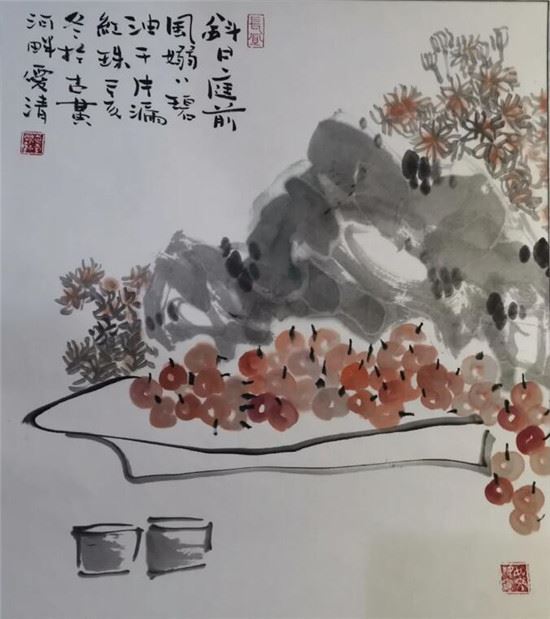 斜日庭前
風嫋〻碧
油千片漏
紅珠己亥
冬於古黄
河畔愛清